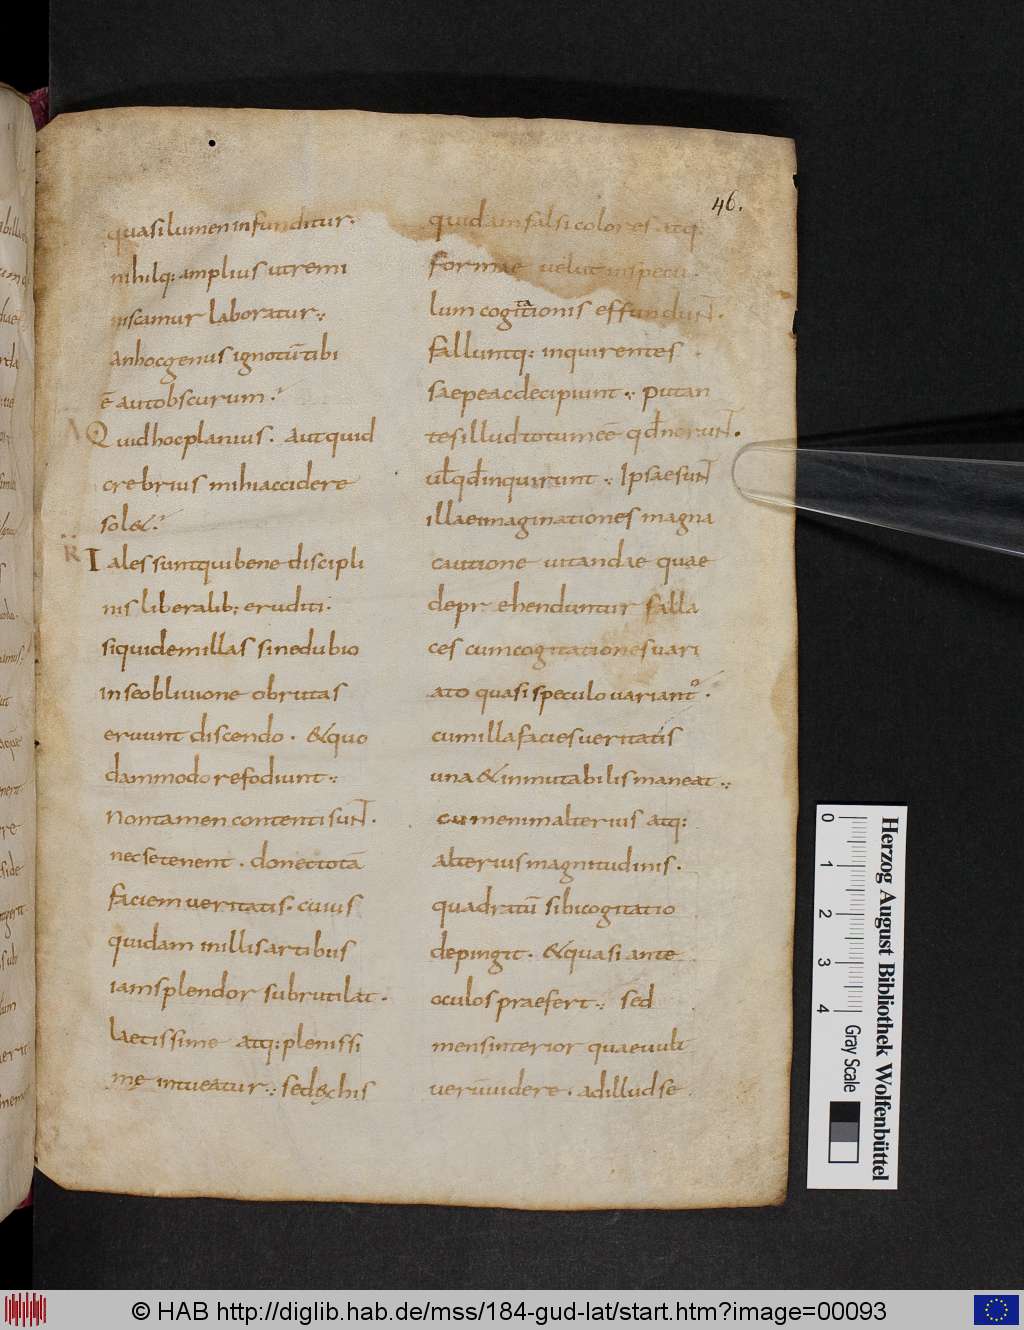 46.
quasi lumen infunditur·
nihilq: amplius utremi
niscamur laboratur:,
An hocgenus ignotū tibi
ē autobscurum·
A Quid hocplanius· Aut quid
crebrius mihiaccidere
sol&·
R Tales sunt qui bene discipli
nis liberalib; eruditi·
siquidemillas sinedubio
inseobliuione obrutas
eruunt discendo· &quo
dammodo refodiunt:,
Nontamen contenti suNT·
necsetenent· donectotā
faciem ueritatis· cuius
quidam inillisartibus
iamsplendor subrutilat·
laetissime atq: plenissi
mę intueatur:, sed&ęhis
quidam falsi colores atq:
formae uelut inspecu
lum cogitationis effunduNT·
ta
falluntq: inquirentes
saepeacdecipiunt:, putan
tes illud totum eē qđnoruNT·
uƚ qđinquirunt:, IpsaesuNT
illae imaginationes magna
cautione uitandae quae
depr ehenduntur falla
ces cumcogitationes uari
ato quasi speculo uariantᵒ·
cumilla facies ueritatis
una &inmutabilis maneat:,
cum enim alterius atq:
alterius magnitudinis·
quadratū sibicogitatio
depingit· &quasi ante
oculos praefert:, sed
mensinterior quaeuult
uerūuidere· adilludse
0 1 2 3 4
Gray Scale
Herzog August Bibliothek Wolfenbüttel
© HAB http://diglib.hab.de/mss/184-gud-lat/start.htm?image=00093